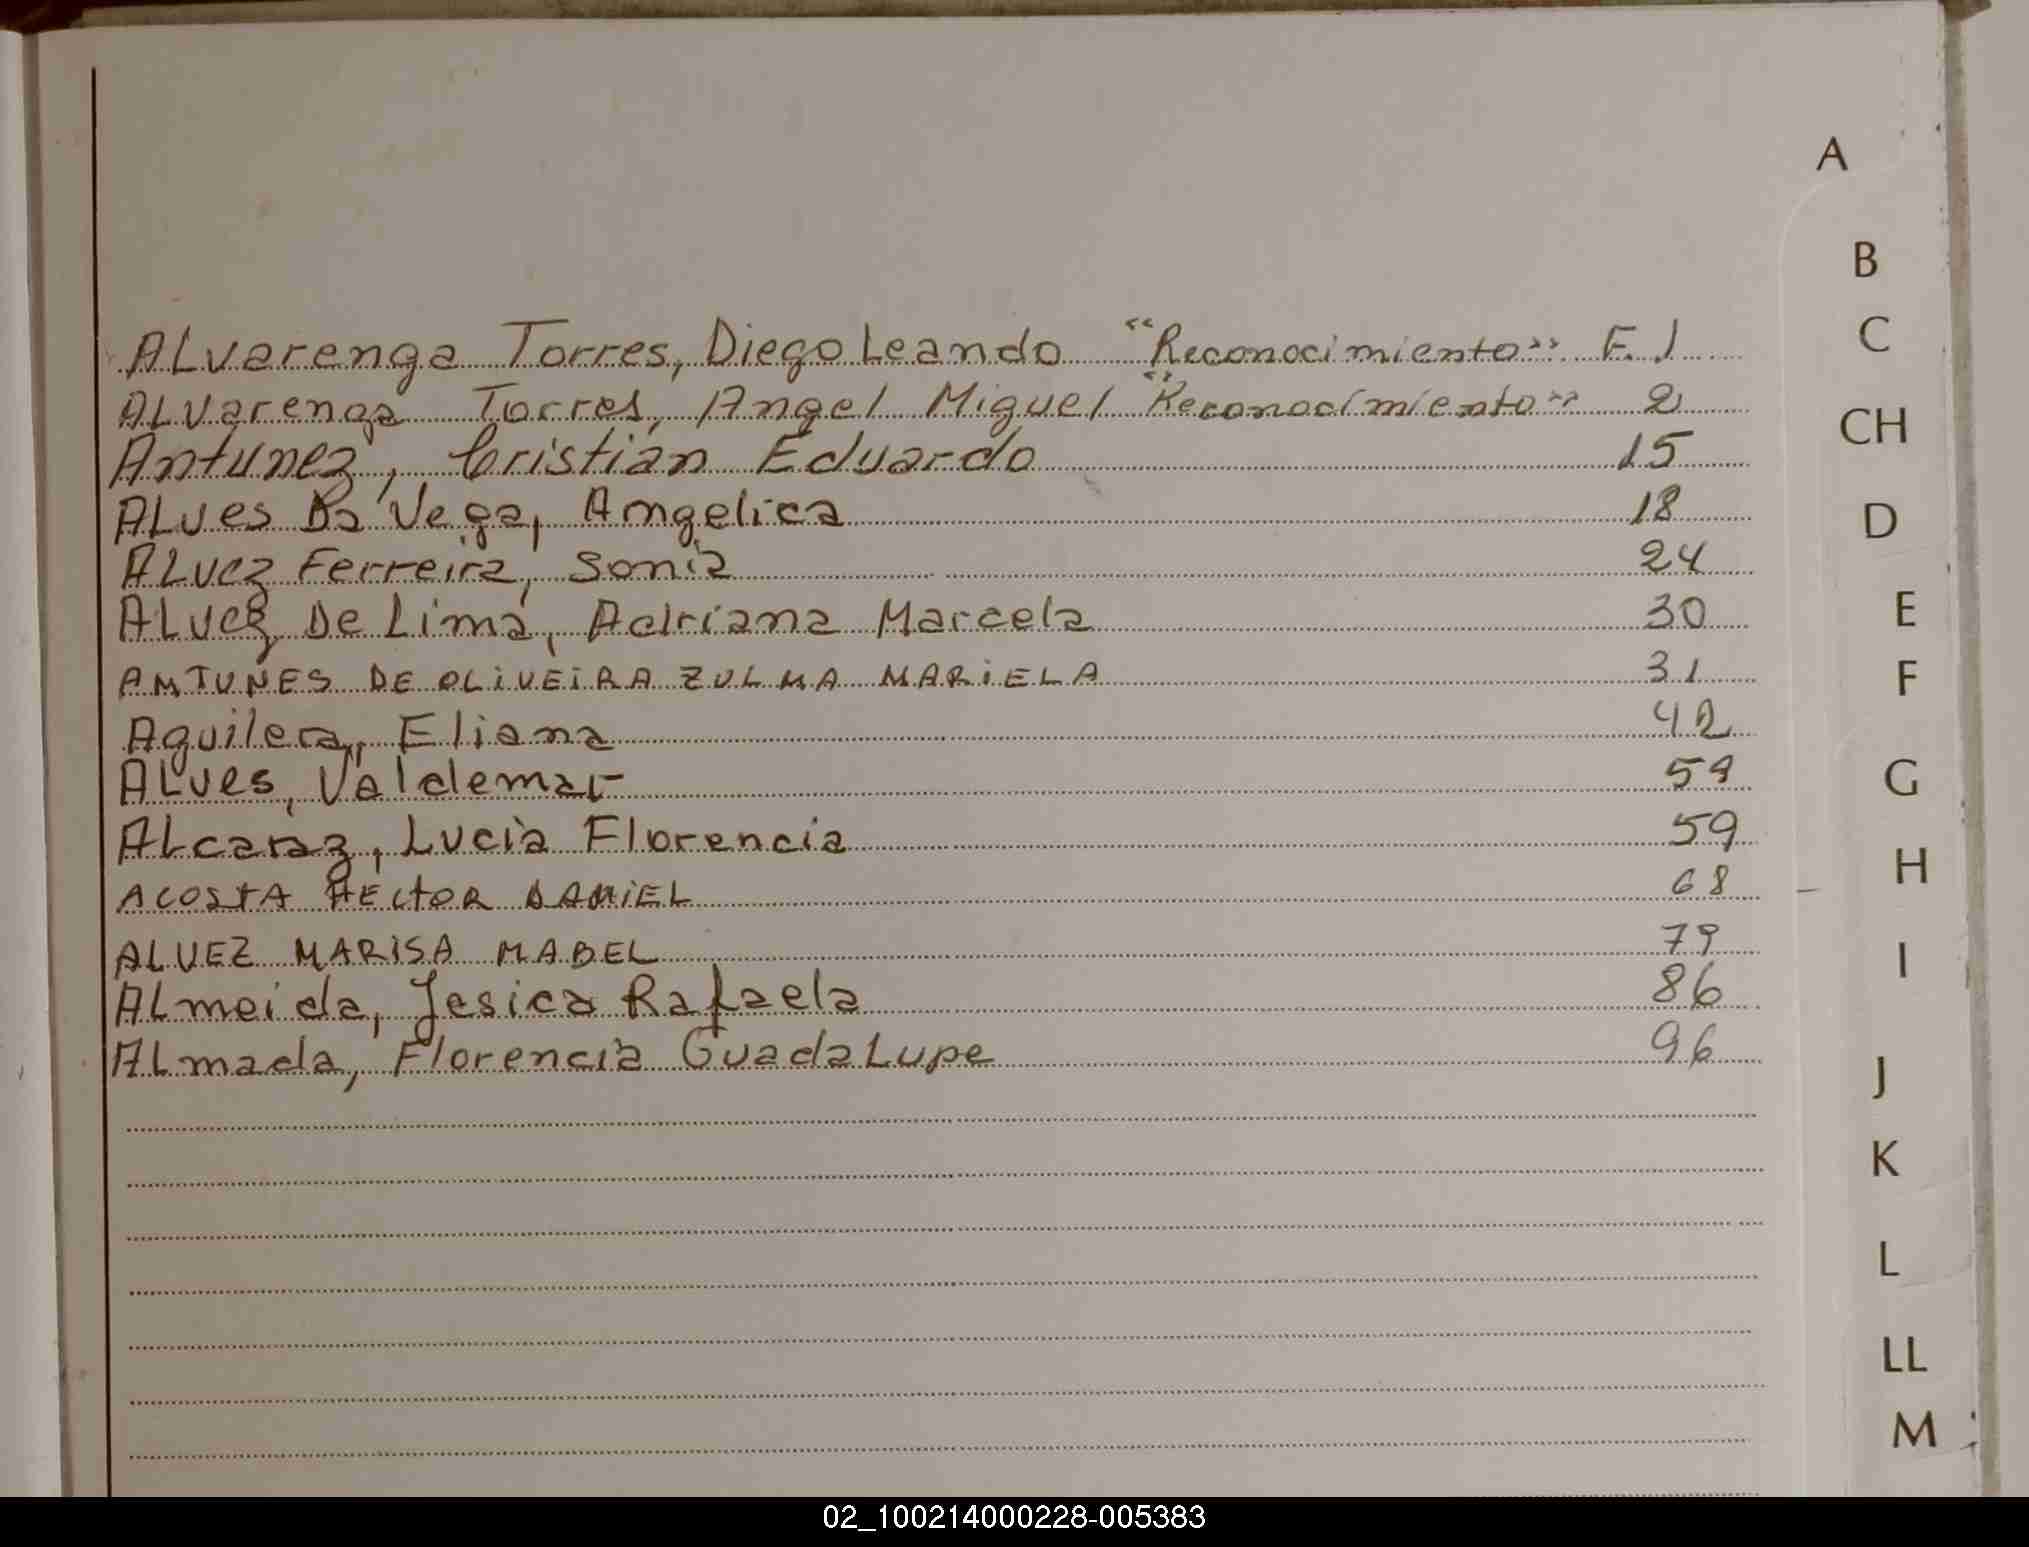 A
B
C
CH
D
E
F
G
H
I
J
K
L
LL
M
ALvarenga Torres, Diego Leando "Reconocimiento" F. 1
ALvarenga Torres, Angel Miguel "Reconocimiento" 2
Antunez, Cristian Eduardo 15
ALves Da Vega, Angelica 18
ALvez Ferreira, Sonia 24
ALvez De Lima, Adriana Marcela 30
AMTUNES DE OLIVEIRA ZULMA MARIELA 31
Aguilera, Eliana 42
ALves, Valdemar
ALcaraz, Lucia Florencia 59
ACOSTA HECTOR DANIEL 68
ALVEZ MARISA MABEL 79
ALmeida, Jesica Rafaela 86
ALmada, Florencia GuadaLupe 96
02_100214000228-005383